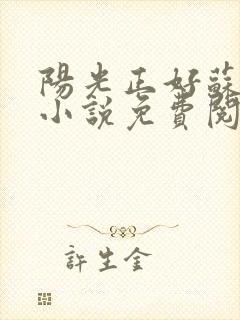 陽光正好蘇
小說免費閱
許生金